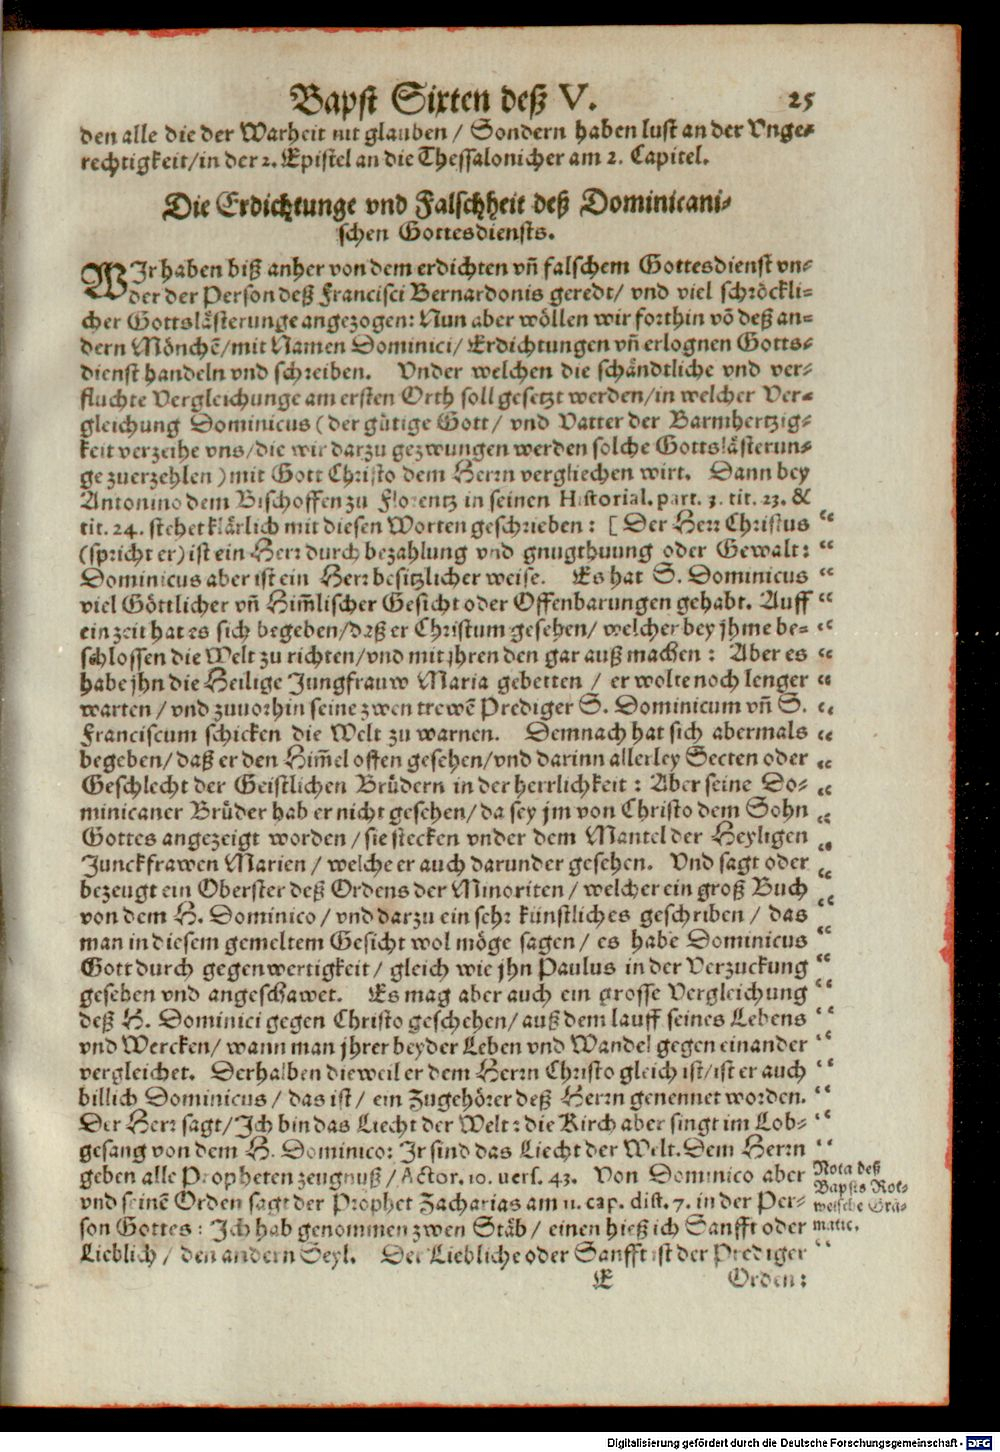 Bapst Sixten deß V. 25
den alle die der Warheit nit glauben / Sondern haben lust an der Vnge-
rechtigkeit/in der 2. Epistel an die Thessalonicher am 2. Capitel.
Die Erdichtunge vnd Falschheit deß Dominicani-
schen Gottesdiensts.
WIr haben biß anher von dem erdichten vñ falschem Gottesdienst vn-
der der Person deß Francisci Bernardonis geredt/ vnd viel schröckli-
cher Gottslästerunge angezogen: Nun aber wöllen wir forthin võ deß an-
dern Mönchẽ/mit Namen Dominici/ Erdichtungen vñ erlognen Gotts-
dienst handeln vnd schreiben. Vnder welchen die schändtliche vnd ver-
fluchte Vergleichunge am ersten Orth soll gesetzt werden/in welcher Ver-
gleichung Dominicus (der gütige Gott/ vnd Vatter der Barmhertzig-
keit verzeihe vns/die wir darzu gezwungen werden solche Gottslästerun-
ge zuerzehlen) mit Gott Christo dem Herrn verglichen wirt. Dann bey
Antonino dem Bischoffen zu Florentz in seinen Historial. part. 3. tit. 23. &
tit. 24. stehet klärlich mit diesen Worten geschrieben: [ Der Herr Christus “
(spricht er) ist ein Herr durch bezahlung vnd gnugthuung oder Gewalt: “
Dominicus aber ist ein Herr besitzlicher weise. Es hat S. Dominicus “
viel Göttlicher vñ Him̃lischer Gesicht oder Offenbarungen gehabt. Auff “
ein zeit hat es sich begeben/daß er Christum gesehen/ welcher bey jhme be- “
schlossen die Welt zu richten/vnd mit jhren den gar auß machen: Aber es “
habe jhn die Heilige Jungfrauw Maria gebetten / er wolte noch lenger “
warten / vnd zuuorhin seine zwen trewẽ Prediger S. Dominicum vñ S. “
Franciscum schicken die Welt zu warnen. Demnach hat sich abermals “
begeben/ daß er den Him̃el offen gesehen/vnd darinn allerley Secten oder “
Geschlecht der Geistlichen Brüdern in der herrlichkeit: Aber seine Do- “
minicaner Brüder hab er nicht gesehen/da sey jm von Christo dem Sohn “
Gottes angezeigt worden / sie stecken vnder dem Mantel der Heyligen “
Junckfrawen Marien / welche er auch darunder gesehen. Vnd sagt oder “
bezeugt ein Oberster deß Ordens der Minoriten / welcher ein groß Buch “
von dem H. Dominico / vnd darzu ein sehr künstliches geschriben / das “
man in diesem gemeltem Gesicht wol möge sagen / es habe Dominicus “
Gott durch gegenwertigkeit / gleich wie jhn Paulus in der Verzuckung “
gesehen vnd angeschawet. Es mag aber auch ein grosse Vergleichung “
deß H. Dominici gegen Christo geschehen/ auß dem lauff seines Lebens “
vnd Wercken/ wann man jhrer beyder Leben vnd Wandel gegen einander “
vergleichet. Derhalben dieweil er dem Herrn Christo gleich ist/ist er auch “
billich Dominicus / das ist / ein Zugehörer deß Herrn genennet worden. “
Der Herr sagt/Ich bin das Liecht der Welt: die Kirch aber singt im Lob- “
gesang von dem H. Dominico: Ir sind das Liecht der Welt. Dem Herrn “
geben alle Propheten zeugnuß / Actor. 10. vers. 43. Von Dominico aber
vnd seinẽ Orden sagt der Prophet Zacharias am 11. cap. dist. 7. in der Per-
son Gottes: Ich hab genommen zwen Stäb / einen hieß ich Sanfft oder
Lieblich / den andern Seyl. Der Liebliche oder Sanfft ist der Prediger “
Nota deß
Bapsts Rot-
welsche Grã-
matic.
E Orden:
Digitalisierung gefördert durch die Deutsche Forschungsgemeinschaft - DFG